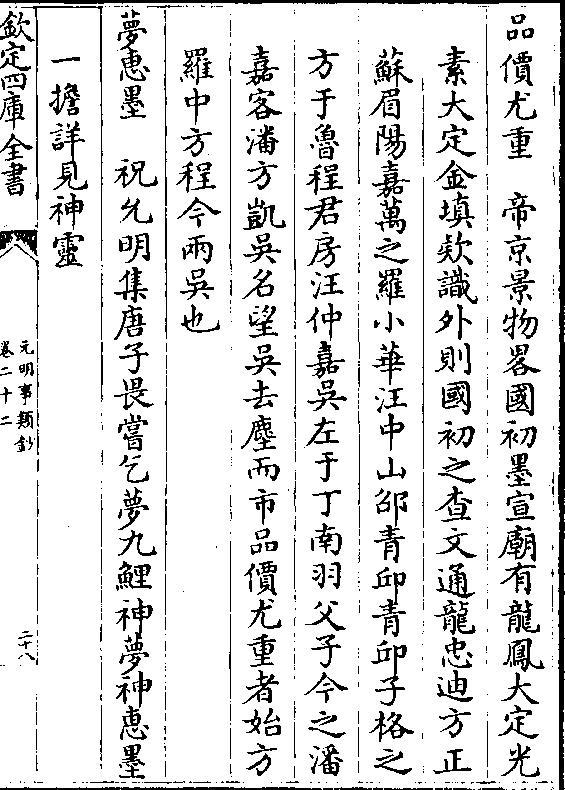 品價尤重　帝京景物畧國初墨宣廟有龍鳳大定光
素大定金填欵識外則國初之查文通龍忠迪方正
蘇眉陽嘉萬之羅小華汪中山邵青邱青邱子格之
方于魯程君房汪仲嘉吳左于丁南羽父子今之潘
嘉客潘方凱吳名望吳去塵而市品價尤重者始方
羅中方程今兩吳也
夢惠墨　祝允明集唐子畏嘗乞夢九鯉神夢神惠墨
一擔詳見神靈
欽定四庫全書
元明事類鈔
卷二十二
二十八